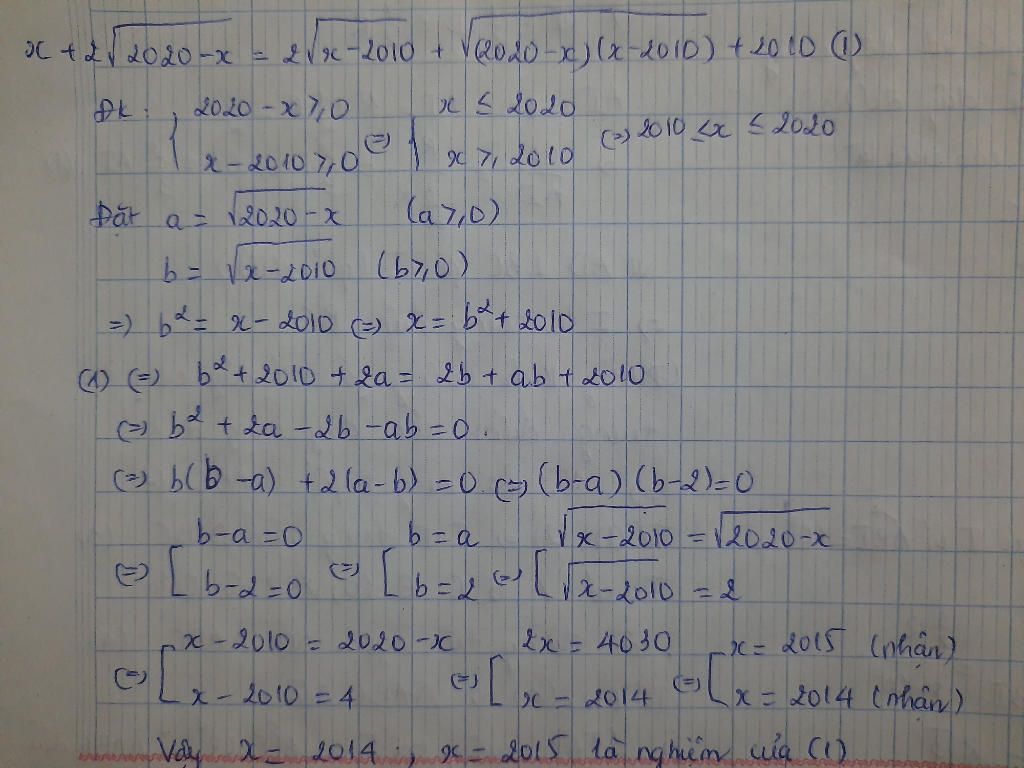 x + 2√(2020-x) = 2√(x-2010) + √((2020-x)(x-2010)) + 2010 (1)
Đk: { 2020-x ≥ 0 (=) { x ≤ 2020 (=) 2010 ≤ x ≤ 2020
x-2010 ≥ 0 x ≥ 2010
Đặt a = √(2020-x) (a ≥ 0)
b = √(x-2010) (b ≥ 0)
=) b² = x-2010 (=) x = b² + 2010
(1) (=) b² + 2010 + 2a = 2b + ab + 2010
(=) b² + 2a - 2b - ab = 0.
(=) b(b-a) + 2(a-b) = 0 (=) (b-a)(b-2) = 0
b-a = 0 b = a √(x-2010) = √(2020-x)
(=) [ b-2 = 0 (=) [ b = 2 (=) [ √(x-2010) = 2
x-2010 = 2020-x 2x = 4030 x = 2015 (nhận)
(=) [ x-2010 = 4 (=) [ x = 2014 (=) [ x = 2014 (nhận)
Vậy x = 2014 ; x = 2015 là nghiệm của (1)